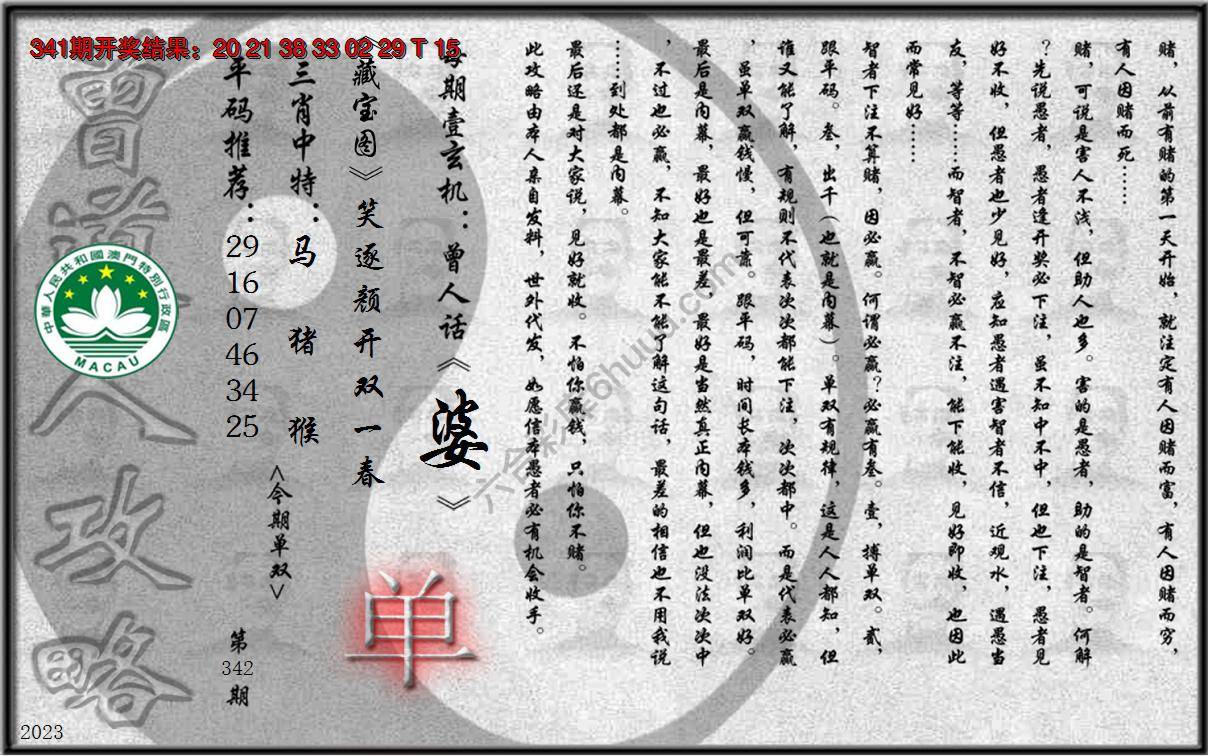 341期开奖结果：20 21 38 33 02 29 T 15
赌，从前有赌的第一天开始，就注定有人因赌而富，有人因赌而穷，
有人因赌而死……
赌，可说是害人不浅，但助人也多。害的是愚者，助的是智者。何解
？先说愚者，愚者逢开奖必下注，虽不知中不中，但也下注，愚者见
好不收，但愚者也少见好，应知愚者遇害智者不信，近观水，遇愚当
友，等等……而智者，不智必赢不注，能下能收，见好即收，也因此
而常见好……
智者下注不算赌，因必赢。何谓必赢？必赢有叁。壹，搏单双。贰，
跟平码。叁，出千（也就是内幕）。单双有规律，这是人人都知，但
谁又能了解，有规则不代表次次都能下注，次次都中。而是代表必赢
，虽单双赢钱慢，但可靠。跟平码，时间长本钱多，利润比单双好。
最后是内幕，最好也是最差，最好是当然真正内幕，但也没法次次中
，不过也必赢，不知大家能不能了解这句话，最差的相信也不用我说
……到处都是内幕。
最后还是对大家说，见好就收。不怕你赢钱，只怕你不赌。
此攻略由本人亲自发料，世外代发，如愿信本愚者必有机会收手。
每期壹玄机：曾人话《婆》
《藏宝图》笑逐颜开双一春
三肖中特：马 猪 猴
平码推荐：
29
16
07
46
34
25
<今期单双>
单
第
342
期
曾道人攻略
中華人民共和國澳門特別行政區
MACAU
2023